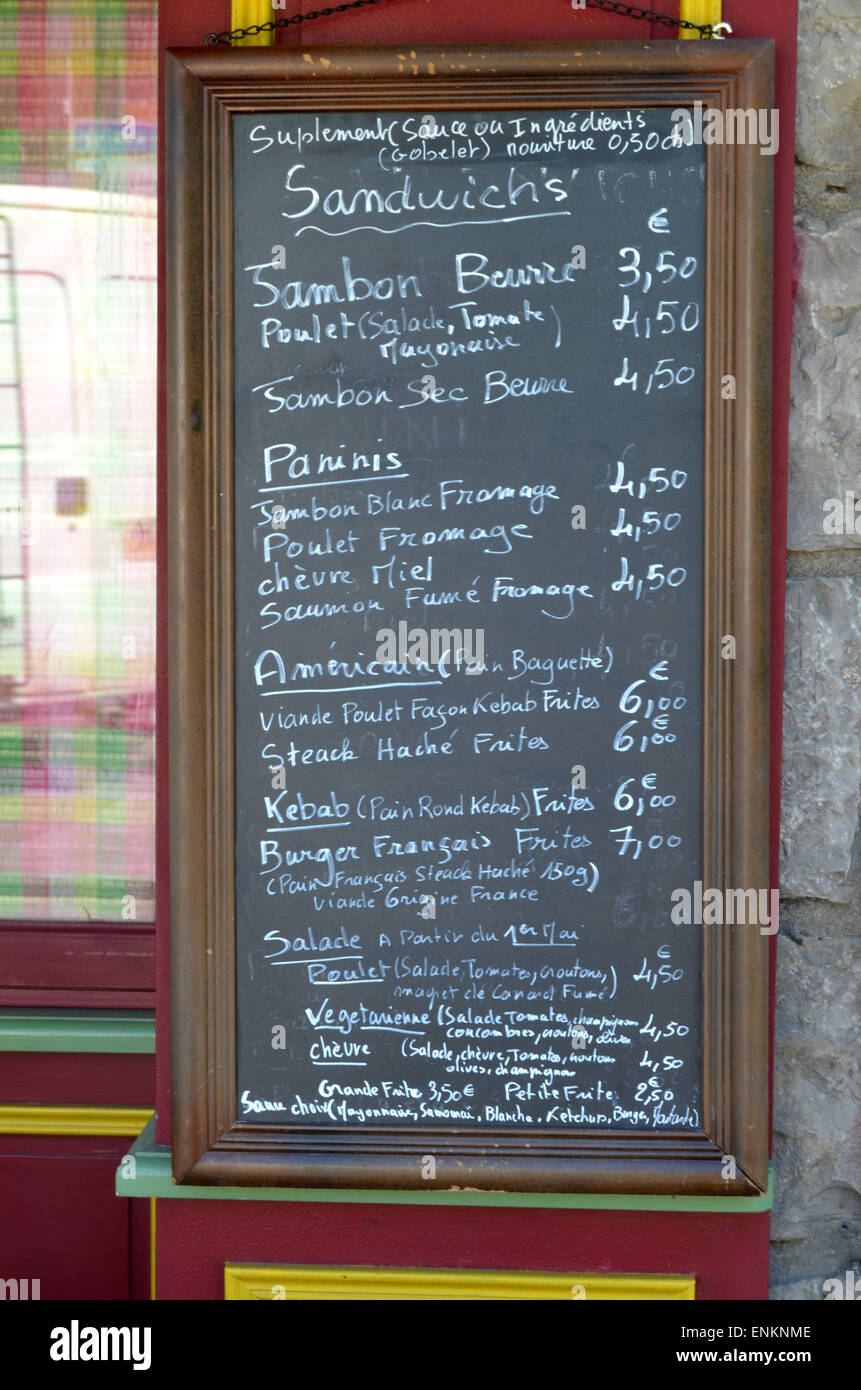 Suplement (Sauce ou Ingrédients
(Gobelet) nouriture 0,50cts)
Sandwich's
€
Jambon Beurre 3,50
Poulet (Salade, Tomate) 4,50
Mayonaise
Jambon Sec Beurre 4,50
Paninis
Jambon Blanc Fromage 4,50
Poulet Fromage 4,50
chèvre Miel
Saumon Fumé Fromage 4,50
Américain (Pain Baguette) €
Viande Poulet Façon Kebab Frites 6,00
€
Steack Haché Frites 6,00
€
Kebab (Pain Rond Kebab) Frites 6,00
Burger Français Frites 7,00
(Pain Français Steack Haché 150g)
Viande Origine France
Salade A Partir du 1er Mai
€
Poulet (Salade, Tomates, croutons,) 4,50
magret de Canard Fumé
Vegetarienne (Salade Tomates, champignons 4,50
concombres, croutons, olives
chèvre (Salade, chèvre, Tomates, croutons 4,50
olives, champignon
€
Grande Frite 3,50€ Petite Frite 2,50
choix (Mayonnaise, Samourai, Blanche, Ketchup, Burger, Moutarde)
alamy
Image ID: ENKNME
www.alamy.com